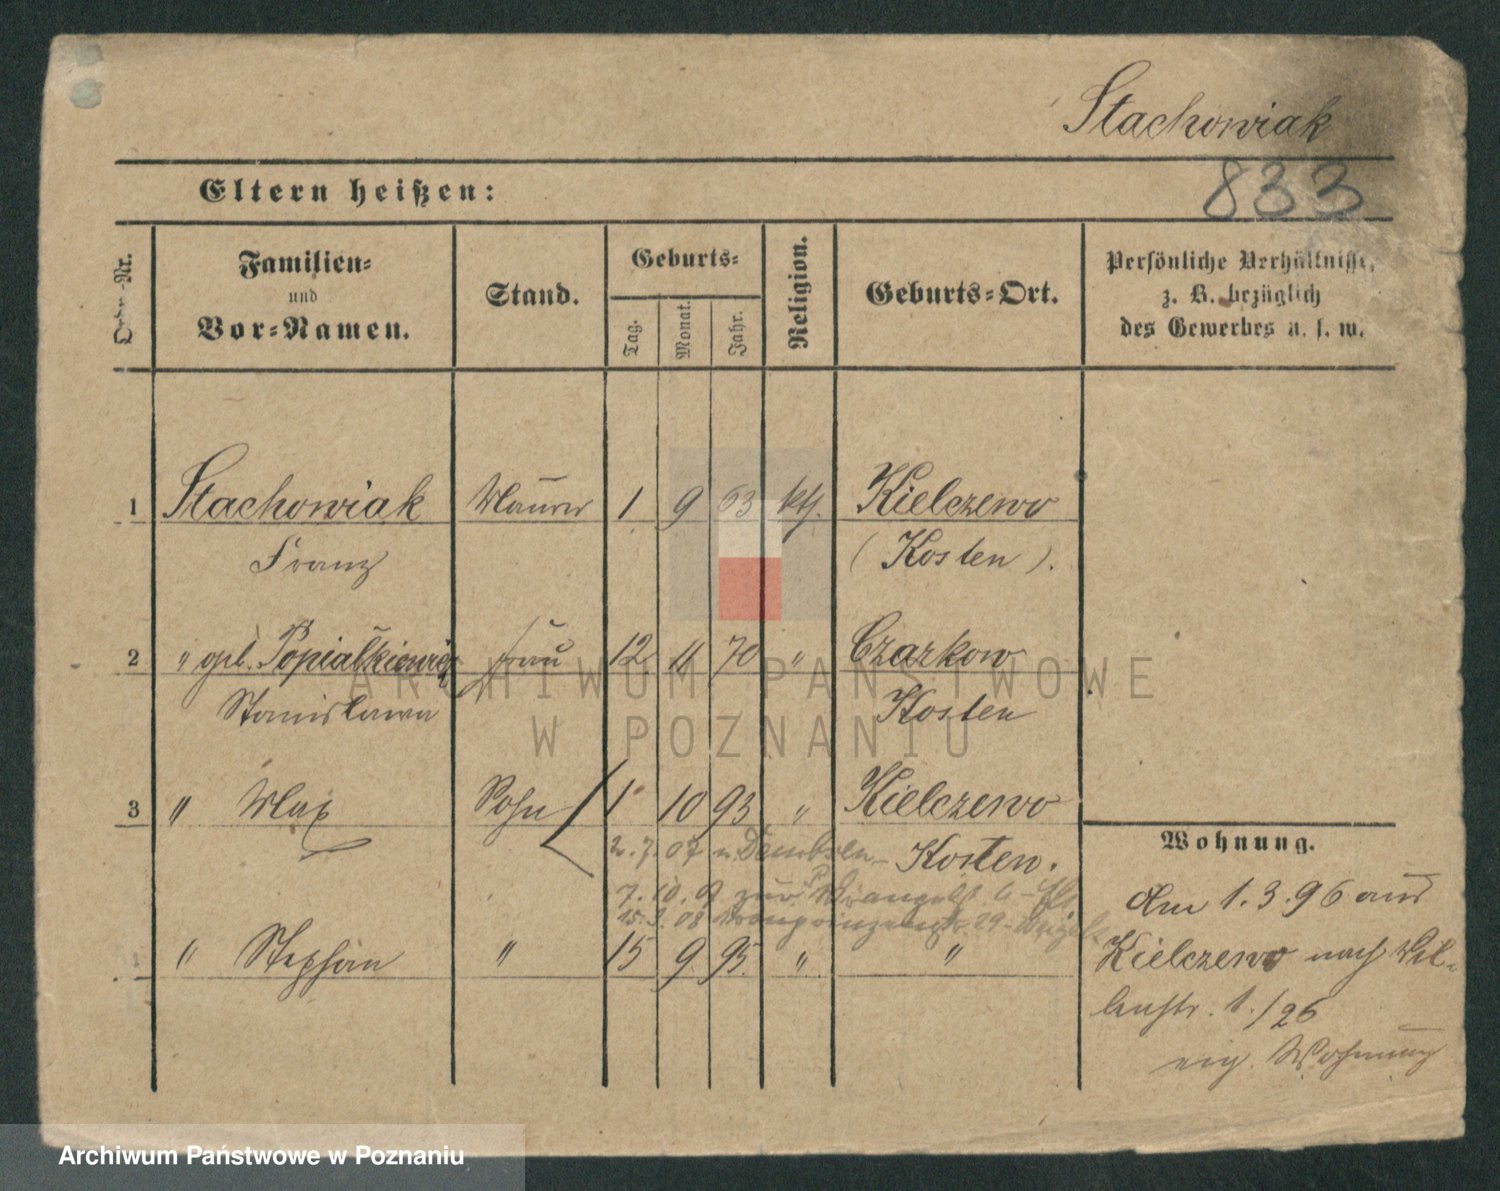 Stachowiak
833
Eltern heißen:
Ordn.-Nr.
Familien-
und
Vor-Namen.
Stand.
Geburts-
Tag.
Monat.
Jahr.
Religion.
Geburts-Ort.
Persönliche Verhältnisse,
z. B. bezüglich
des Gewerbes u. s. w.
1 Stachowiak Maurer 1 9 63 kth. Kielczewo
Franz (Kosten).
2 " geb. Popialkiewicz Frau 12 11 70 " Czarkow
Stanislawa Kosten
3 " Max Sohn 1 10 93 " Kielczewo
Kosten.
2.7.07 n Dembsen
7.10.07 zur Wrangelst. 6
15.3.08 Kronprinzenstr. 29
" Stephan " 15 9 95 " "
Wohnung.
Am 1.3.96 aus
Kielczewo nach
1./26
eig. Wohnung
ARCHIWUM PAŃSTWOWE
W POZNANIU
Archiwum Państwowe w Poznaniu